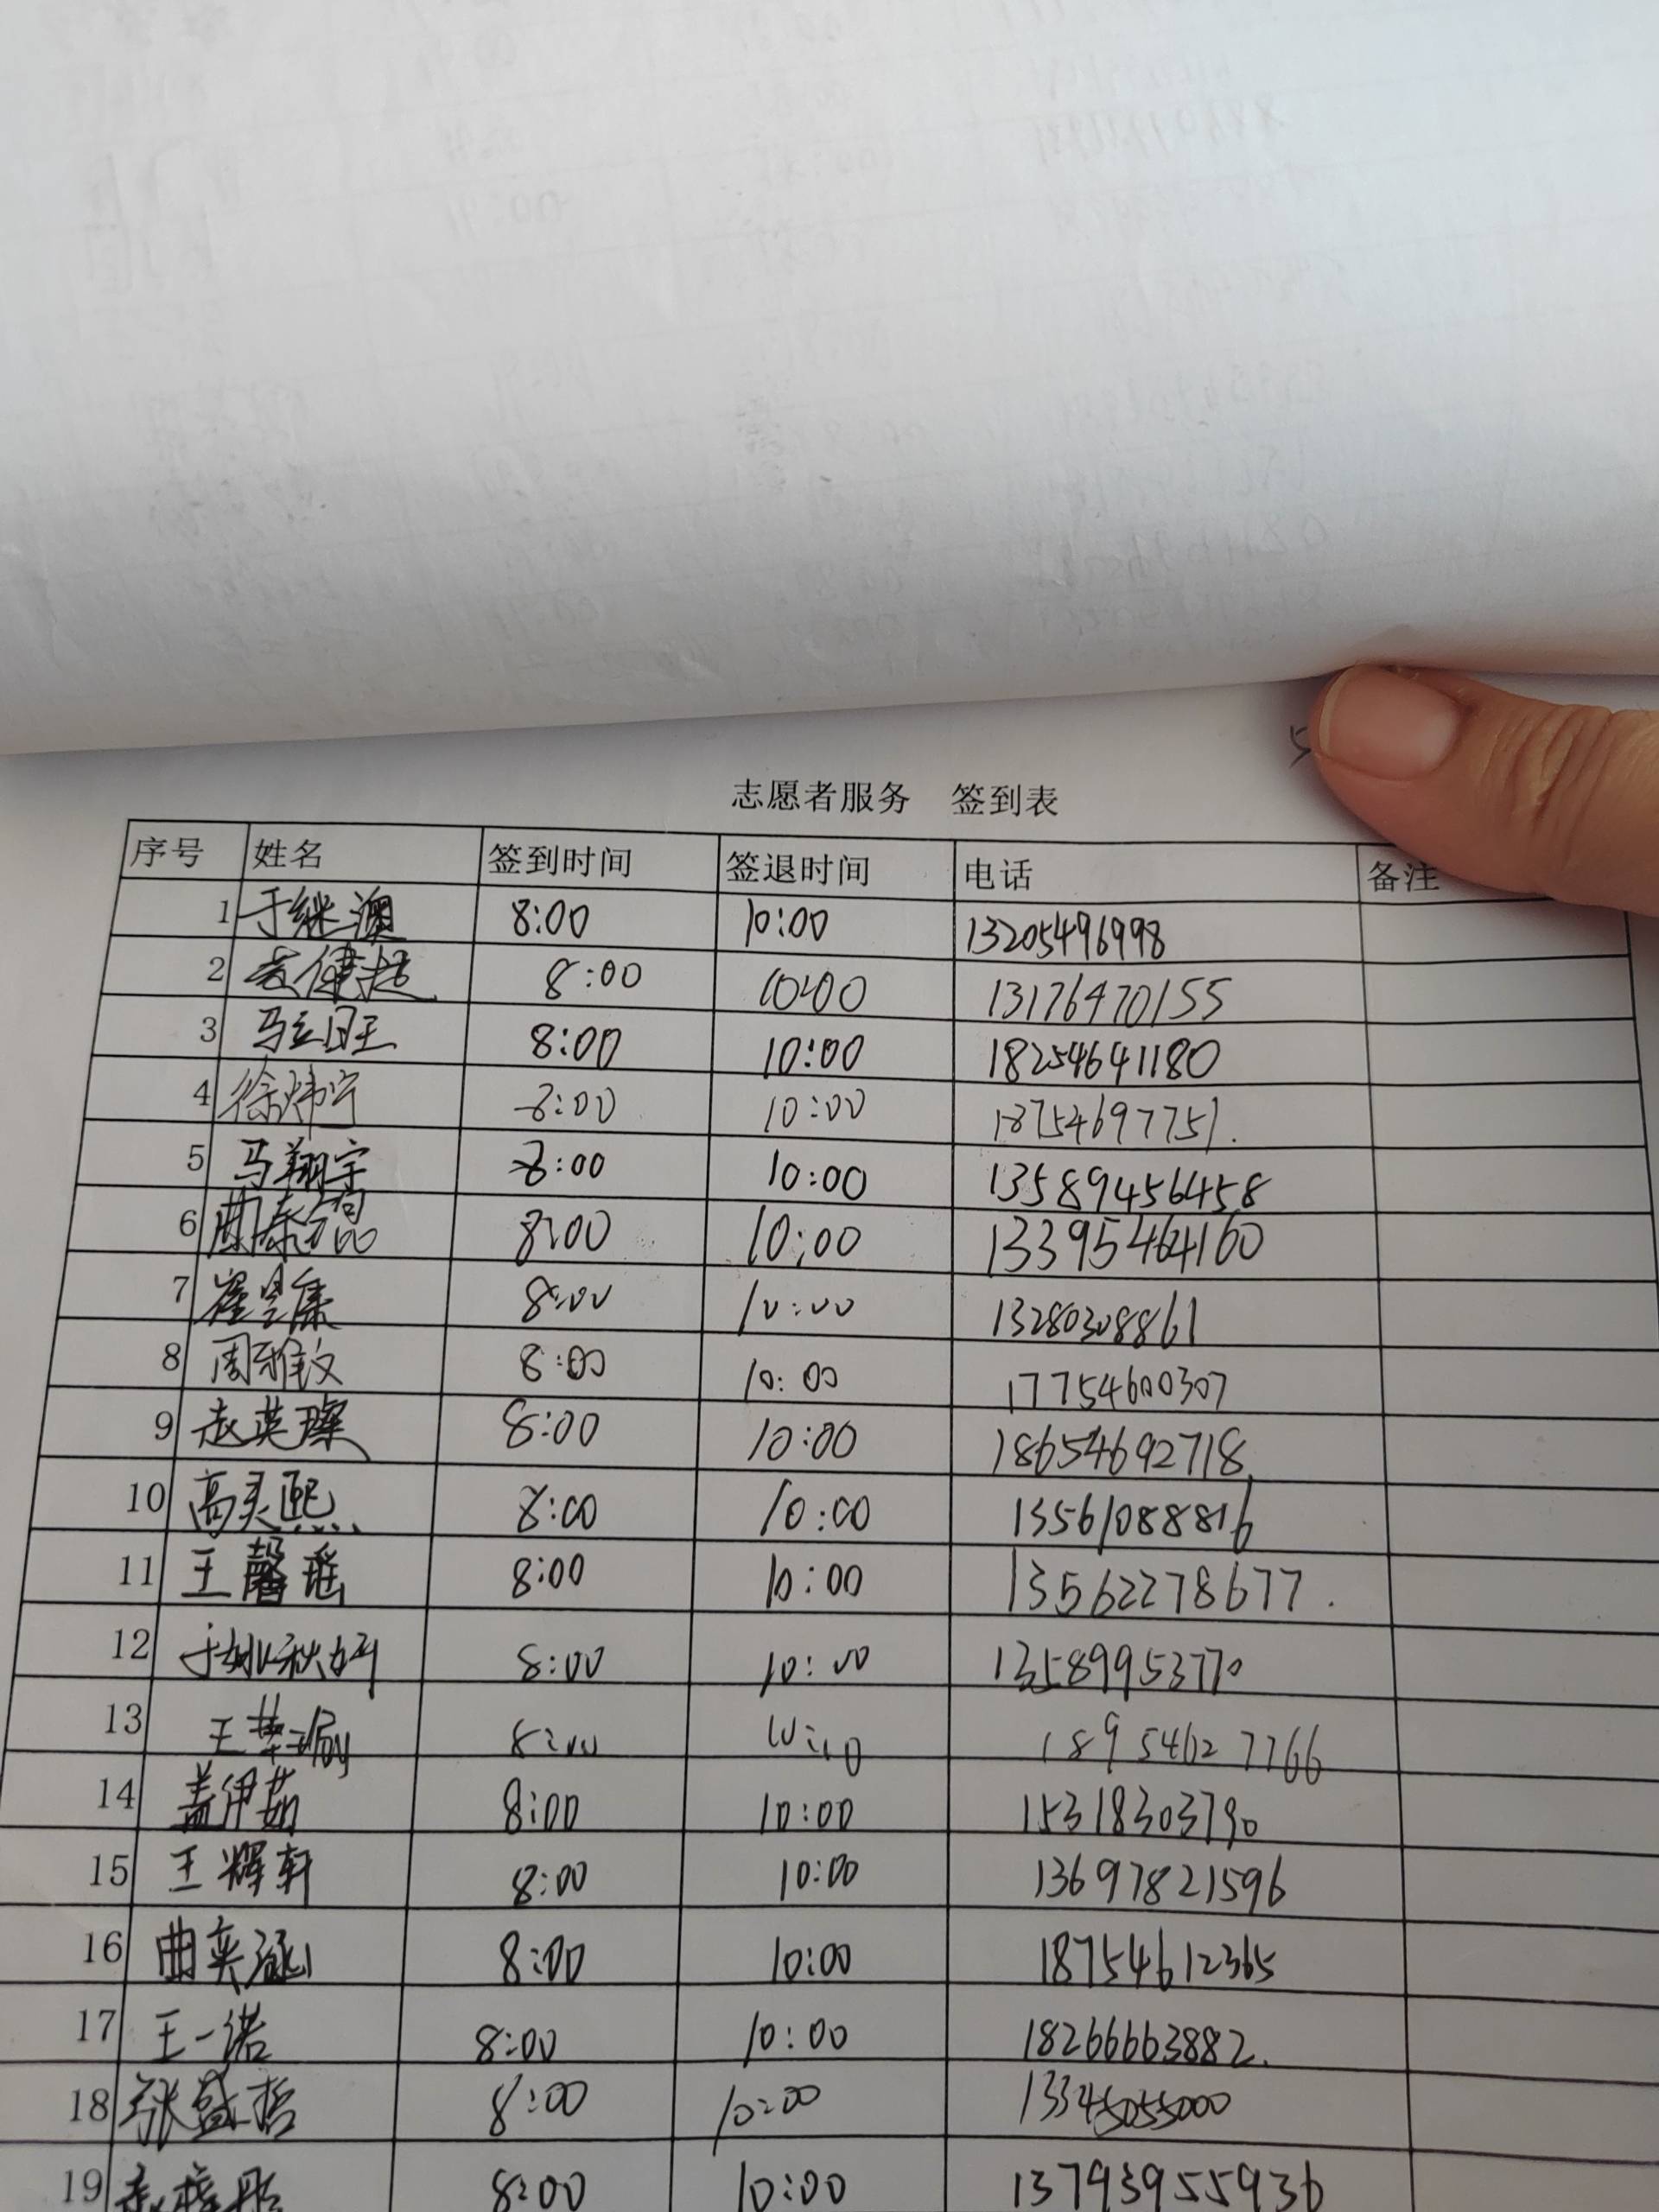 志愿者服务 签到表
序号 姓名 签到时间 签退时间 电话 备注
1 于继澳 8:00 10:00 13205496998
2 8:00 10:00 13176470155
3 马立钰 8:00 10:00 18254641180
4 徐炜宁 8:00 10:00 18754697751.
5 马翔宇 8:00 10:00 13589456458
6 8:00 10:00 13395464160
7 崔昱康 8:00 10:00 13280308861
8 周雅纹 8:00 10:00 17754600307
9 赵英璨 8:00 10:00 18654692718
10 高灵熙 8:00 10:00 13561088816
11 王馨瑶 8:00 10:00 13562278677.
12 于姚秋妍 8:00 10:00 13589953770
13 8:00 10:00 18954627766
14 盖伊茹 8:00 10:00 15318303790
15 王辉轩 8:00 10:00 13697821596
16 曲奕涵 8:00 10:00 18754612365
17 王一诺 8:00 10:00 18266663882.
18 张盛哲 8:00 10:00 13345055000
19 8:00 10:00 137939955936